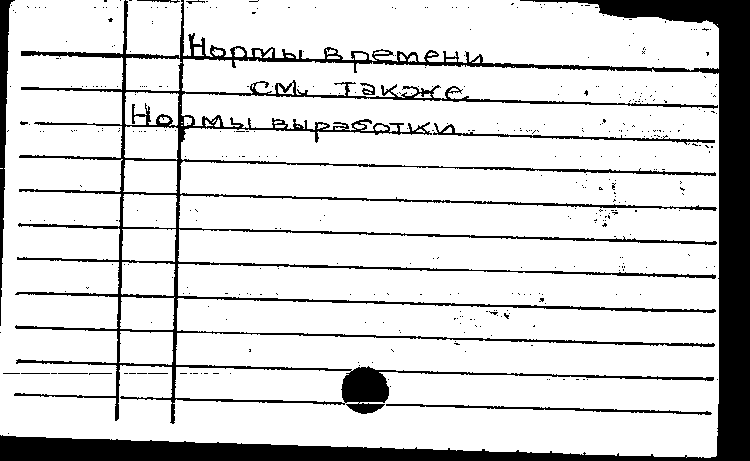 Нормы времени
см. также
Нормы выработки